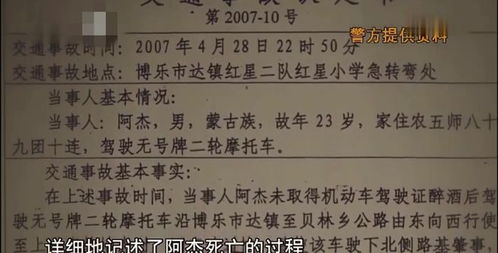 交通事故
第 2007-10 号
警方提供资料
交通事故时间: 2007 年 4 月 28 日 22 时 50 分
交通事故地点: 博乐市达镇红星二队红星小学急转弯处
当事人基本情况:
当事人: 阿杰, 男, 蒙古族, 故年 23 岁, 家住农五师八十
九团十连, 驾驶无号牌二轮摩托车。
交通事故基本事实:
在上述事故时间, 当事人阿杰未取得机动车驾驶证醉酒后驾
驶无号牌二轮摩托车沿博乐市达镇至贝林乡公路由东向西行使
至上 该车驶下北侧路基肇事,
详细地记述了阿杰死亡的过程